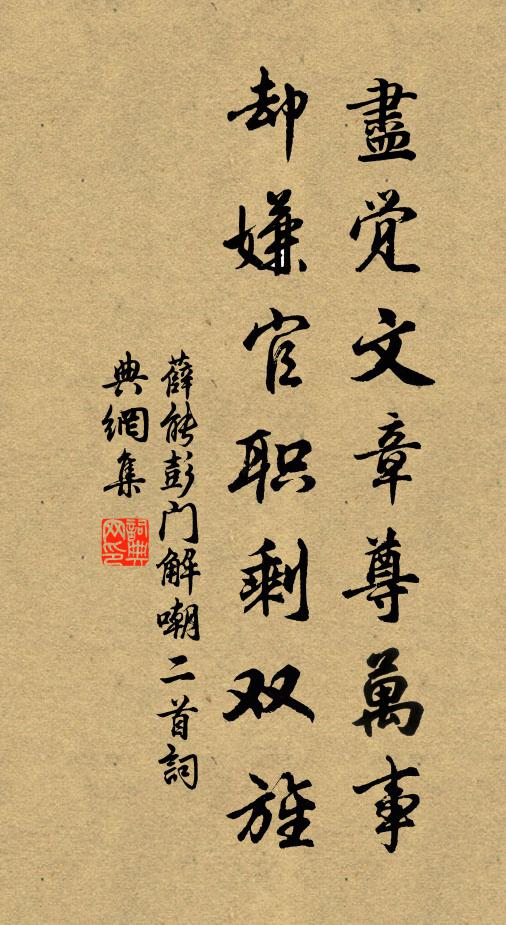 盡觉文章尊萬事
却嫌官职剩双旌
薛能彭门解嘲二首詞
典網集
詞典网印